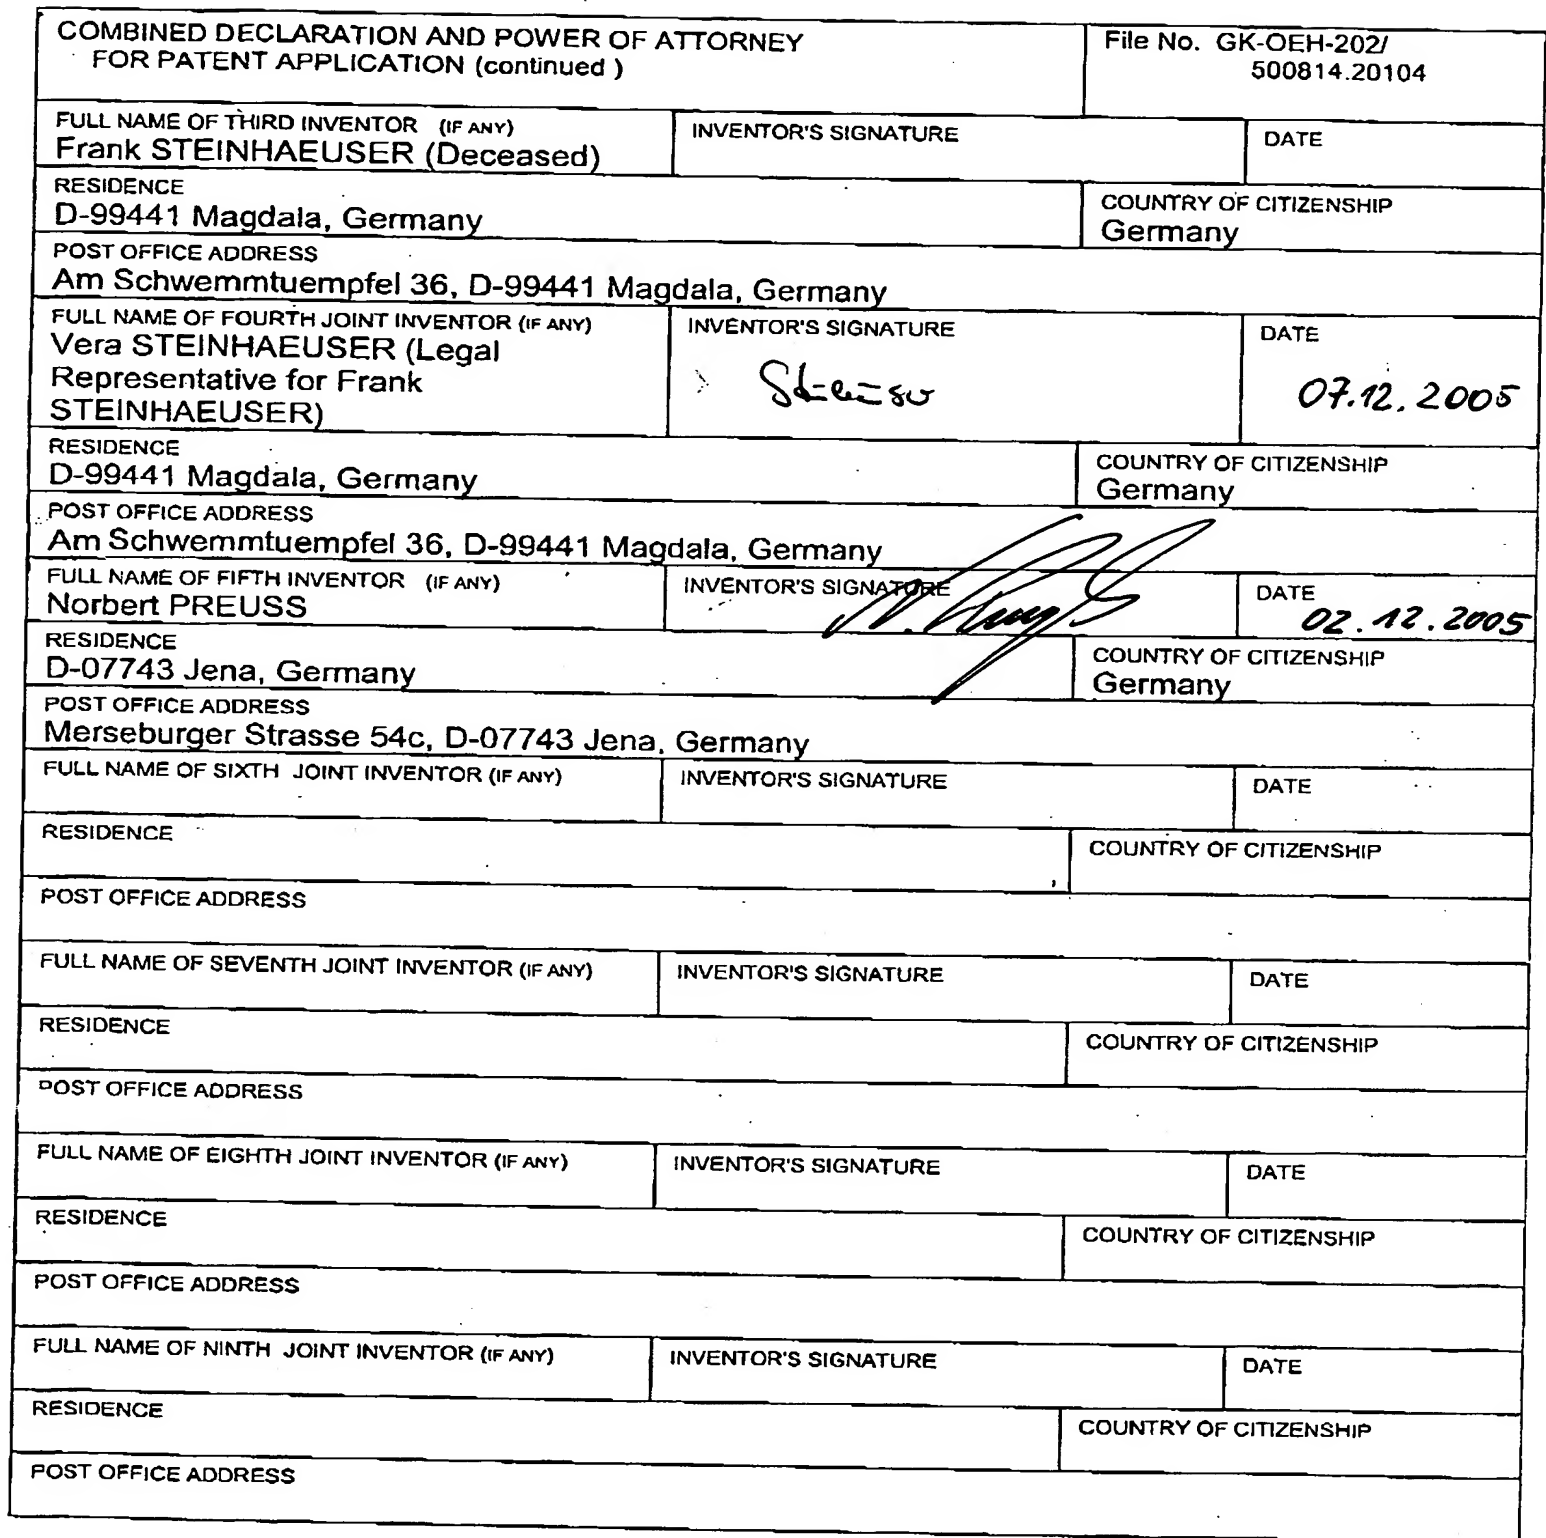 COMBINED DECLARATION AND POWER OF ATTORNEY
FOR PATENT APPLICATION (continued )
File No. GK-OEH-202/
500814.20104
FULL NAME OF THIRD INVENTOR (IF ANY)
Frank STEINHAEUSER (Deceased)
INVENTOR'S SIGNATURE
DATE
RESIDENCE
D-99441 Magdala, Germany
COUNTRY OF CITIZENSHIP
Germany
POST OFFICE ADDRESS
Am Schwemmtuempfel 36, D-99441 Magdala, Germany
FULL NAME OF FOURTH JOINT INVENTOR (IF ANY)
Vera STEINHAEUSER (Legal
Representative for Frank
STEINHAEUSER)
INVENTOR'S SIGNATURE
DATE
07.12.2005
RESIDENCE
D-99441 Magdala, Germany
COUNTRY OF CITIZENSHIP
Germany
POST OFFICE ADDRESS
Am Schwemmtuempfel 36, D-99441 Magdala, Germany
FULL NAME OF FIFTH INVENTOR (IF ANY)
Norbert PREUSS
INVENTOR'S SIGNATURE
DATE
02.12.2005
RESIDENCE
D-07743 Jena, Germany
COUNTRY OF CITIZENSHIP
Germany
POST OFFICE ADDRESS
Merseburger Strasse 54c, D-07743 Jena, Germany
FULL NAME OF SIXTH JOINT INVENTOR (IF ANY)
INVENTOR'S SIGNATURE
DATE
RESIDENCE
COUNTRY OF CITIZENSHIP
POST OFFICE ADDRESS
FULL NAME OF SEVENTH JOINT INVENTOR (IF ANY)
INVENTOR'S SIGNATURE
DATE
RESIDENCE
COUNTRY OF CITIZENSHIP
POST OFFICE ADDRESS
FULL NAME OF EIGHTH JOINT INVENTOR (IF ANY)
INVENTOR'S SIGNATURE
DATE
RESIDENCE
COUNTRY OF CITIZENSHIP
POST OFFICE ADDRESS
FULL NAME OF NINTH JOINT INVENTOR (IF ANY)
INVENTOR'S SIGNATURE
DATE
RESIDENCE
COUNTRY OF CITIZENSHIP
POST OFFICE ADDRESS